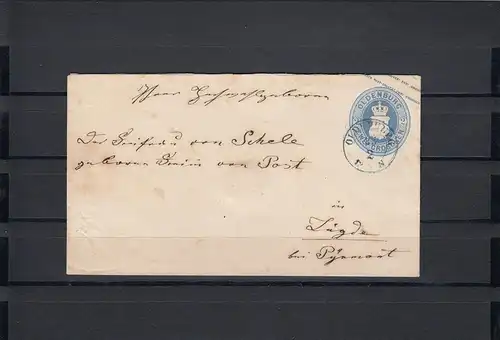 Ihrer Hochwohlgeboren
Der Freifrau von Schele
geborene Freiin von Post
in
Lügde
bei Pyrmont
OLDENBURG